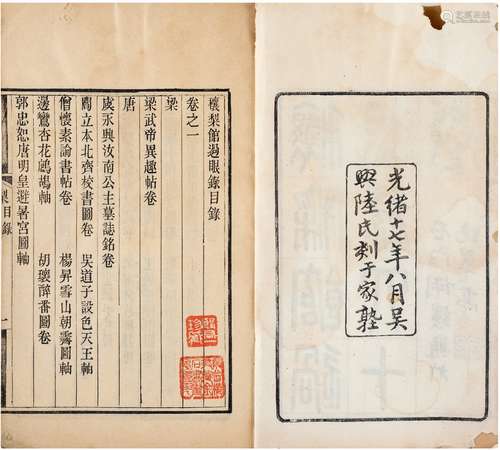 光緒十七年八月吳
興陸氏刻于家塾
穰梨館過眼錄目錄
卷之一
梁
梁武帝異趣帖卷
唐
虞永興汝南公主墓誌銘卷
閻立本北齊校書圖卷 吳道子設色天王軸
僧懷素論書帖卷 楊昇雪山朝霽圖軸
邊鸞杏花鷓鴣軸 胡瓌醉番圖卷
郭忠恕唐明皇避暑宮圖軸
梨目錄
一